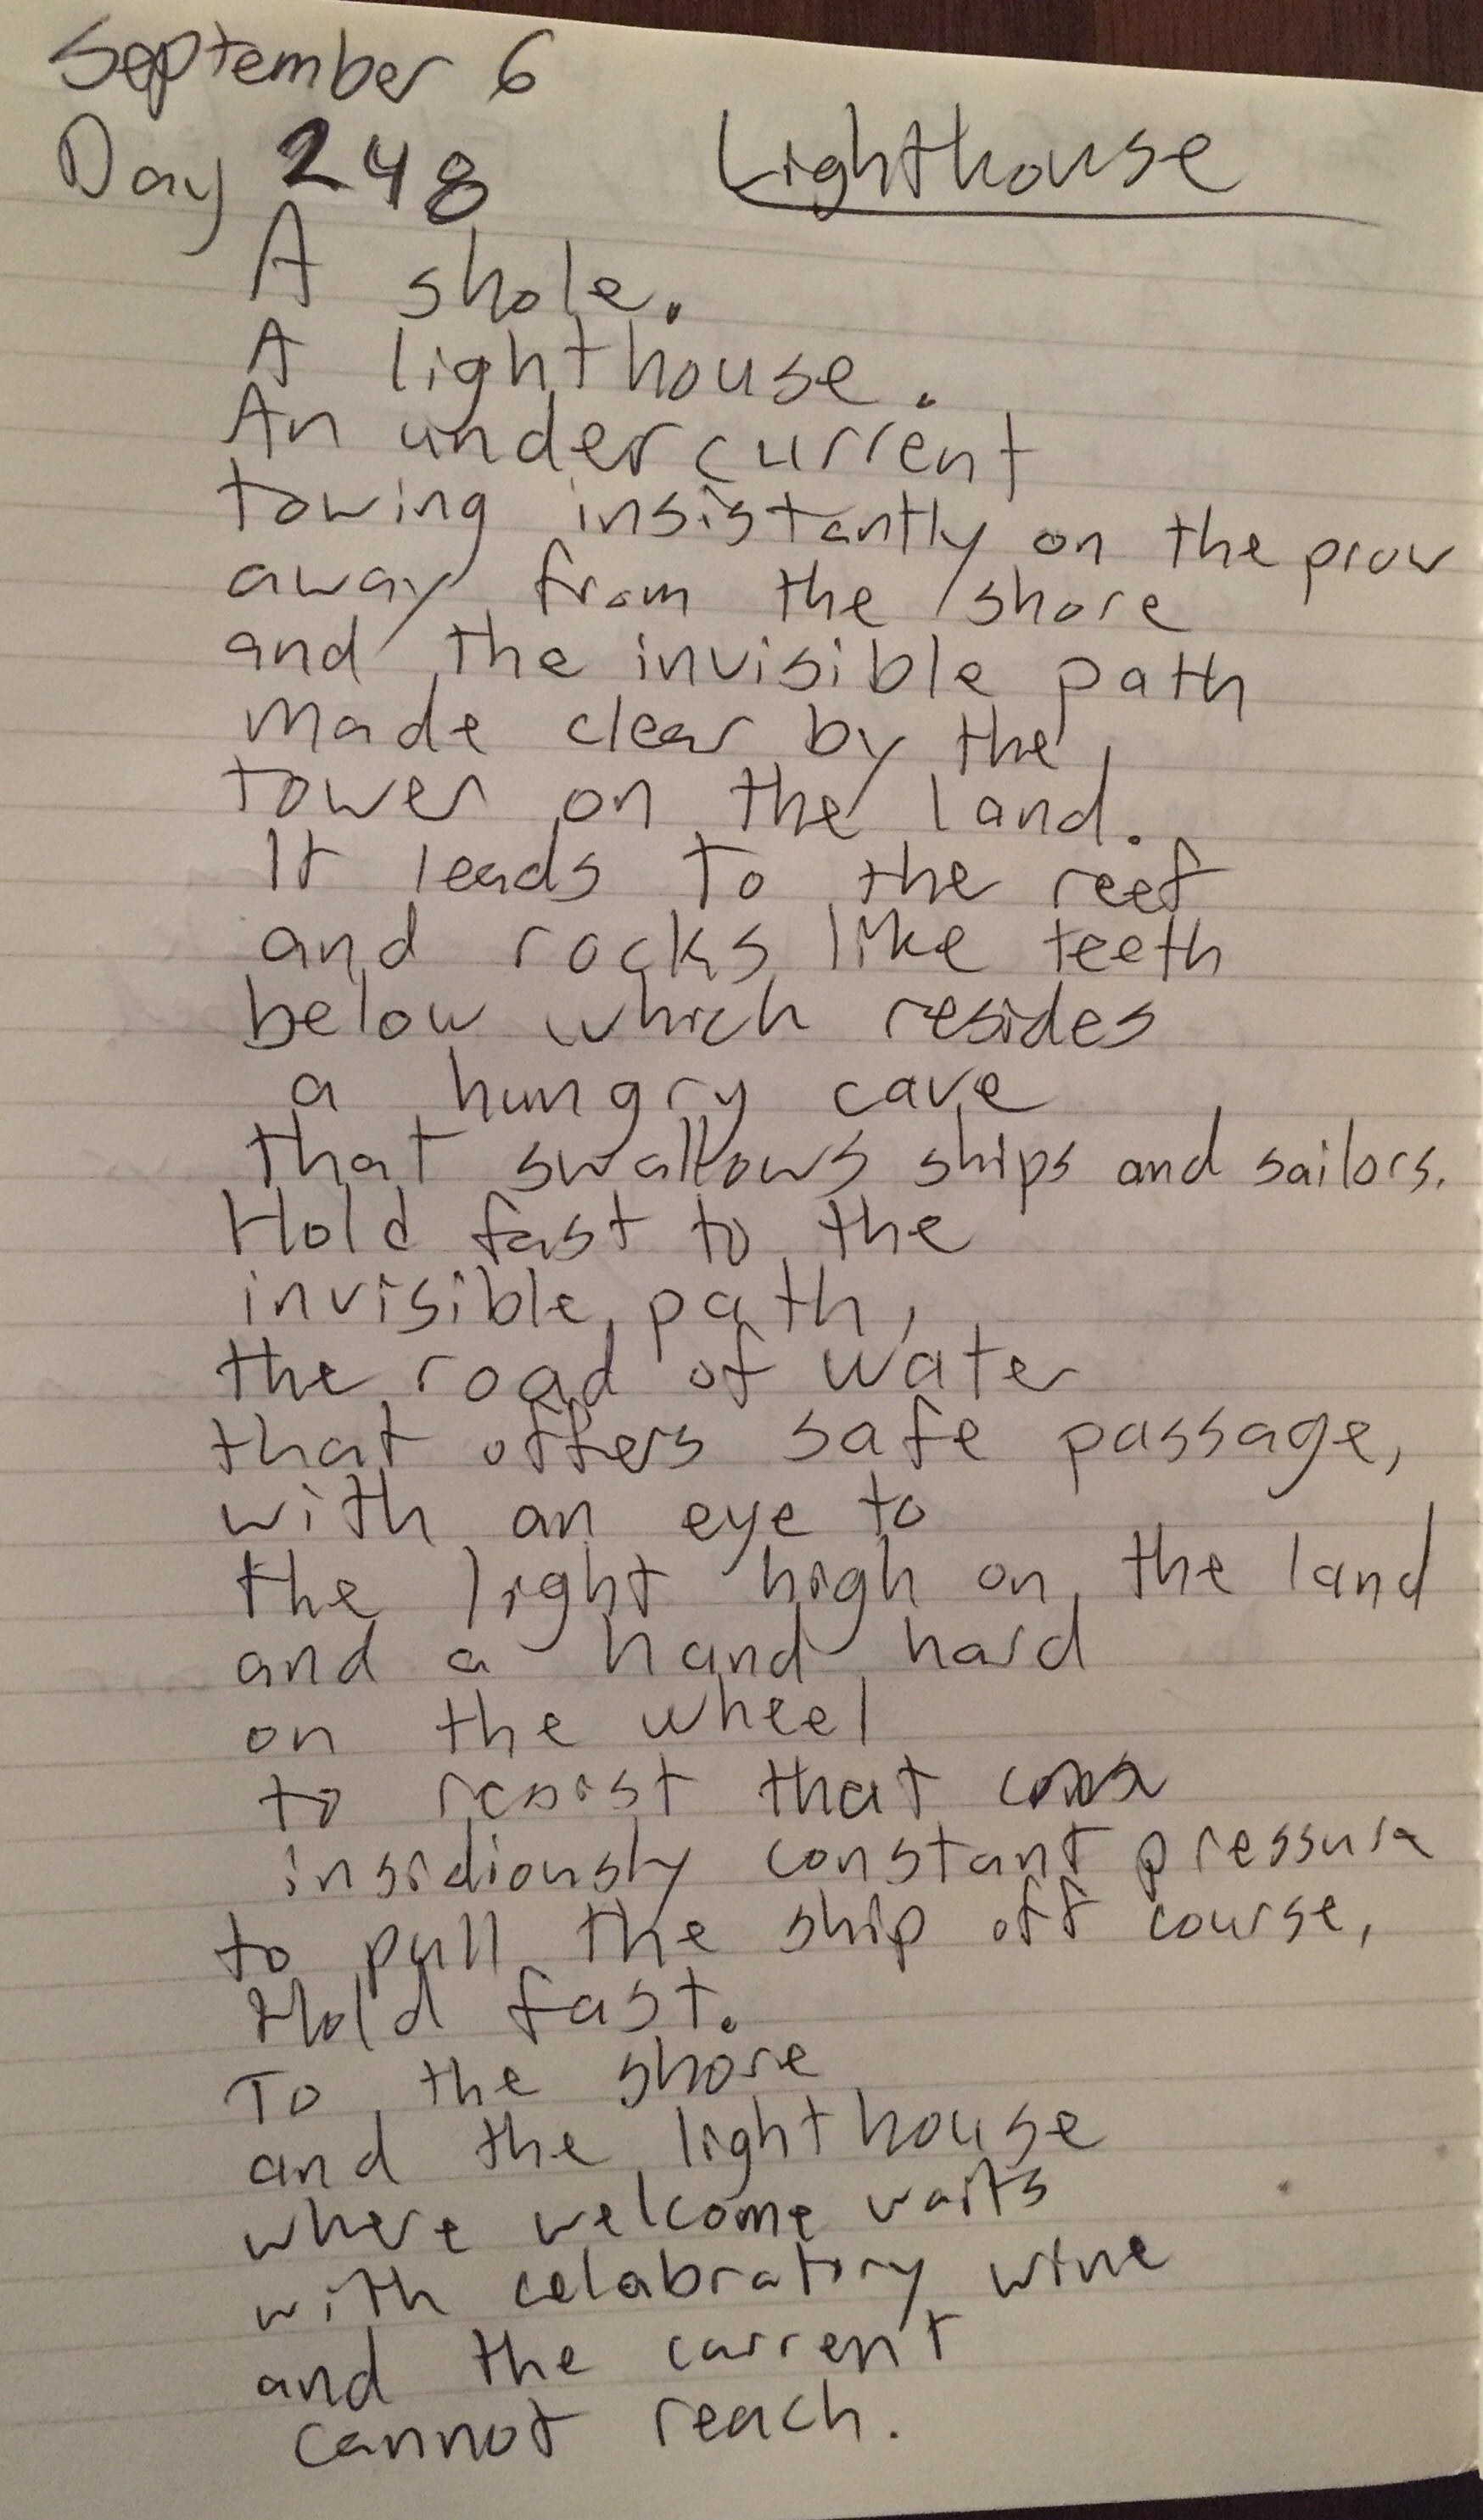 September 6
Day 248
Lighthouse
A shole.
A lighthouse.
An undercurrent
towing insistantly on the prow
away from the shore
and the invisible path
made clear by the
tower on the land.
It leads to the reef
and rocks like teeth
below which resides
a hungry cave
that swallows ships and sailors.
Hold fast to the
invisible path,
the road of water
that offers safe passage,
with an eye to
the light high on the land
and a hand hard
on the wheel
to resist that
insidiously constant pressure
to pull the ship off course,
Hold fast.
To the shore
and the lighthouse
where welcome waits
with celabratory wine
and the current
cannot reach.